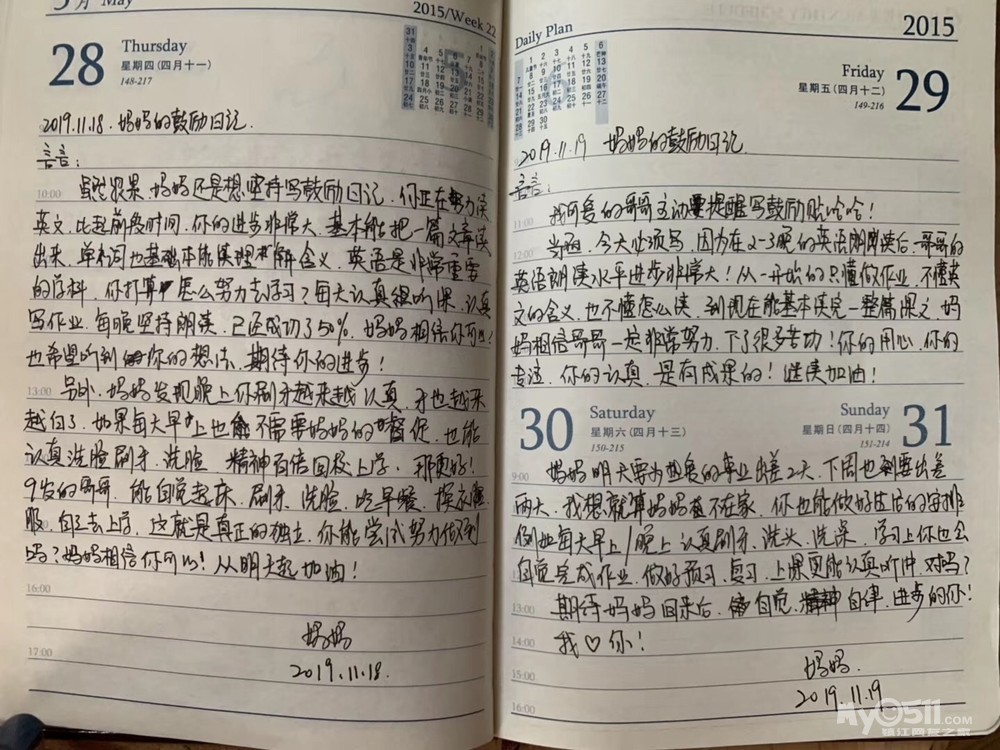 5月 May
2015/Week 22
28
Thursday
星期四(四月十一)
148-217
2019.11.18. 妈妈的鼓励日记.
言言:
10:00
虽然很累,妈妈还是想坚持写鼓励日记.你正在努力读
英文,比起前段时间,你的进步非常大,基本能把一篇文章读
出来,单词也基本能读理解含义,英语是非常重要
的学科,你打算怎么努力去学习?每天认真听课,认真
写作业,每晚坚持朗读,已经成功了50%,妈妈相信你可以!
也希望听到你的想法,期待你的进步!
13:00
另外,妈妈发现晚上你刷牙越来越认真,牙也越来
越白了,如果每天早上也能不需要妈妈的督促,也能
认真洗脸刷牙,洗脸,精神百倍回校上学,那更好!
9岁的哥哥,能自觉起床,刷牙,洗脸,吃早餐,换衣
服,自己去上学,这就是真正的独立,你能尝试努力做到
吗?妈妈相信你可以!从明天起加油!
16:00
妈妈
17:00
2019.11.18.
Daily Plan
2015
Friday
星期五(四月十二)
149-216
29
2019.11.19 妈妈的鼓励日记
言言:
11:00
我可爱的哥哥主动提醒写鼓励贴哈哈!
12:00
当然,今天必须写,因为在2-3晚的英语朗读后,哥哥的
英语朗读水平进步非常大!从一开始的只懂做作业,不懂英
文的含义,也不懂怎么读,到现在能基本读完一整篇课文,妈
妈相信哥哥一定非常努力,下了很多苦功!你的用心,你的
专注,你的认真,是有成果的!继续加油!
30
Saturday
星期六(四月十三)
150-215
Sunday
星期日(四月十四)
151-214
31
9:00
妈妈明天要为热爱的事业出差2天,下周也要出差
两天,我想就算妈妈不在家,你也能做好生活的安排
例如每天早上/晚上认真刷牙,洗头,洗澡,学习上你也会
自觉完成作业,做好预习,复习,上课更能认真听讲,对吗?
13:00
期待妈妈回来后,自觉,自律,进步的你!
14:00
我♡你!
15:00
妈妈.
2019.11.19
16:00
my0511.com
镇江网友之家